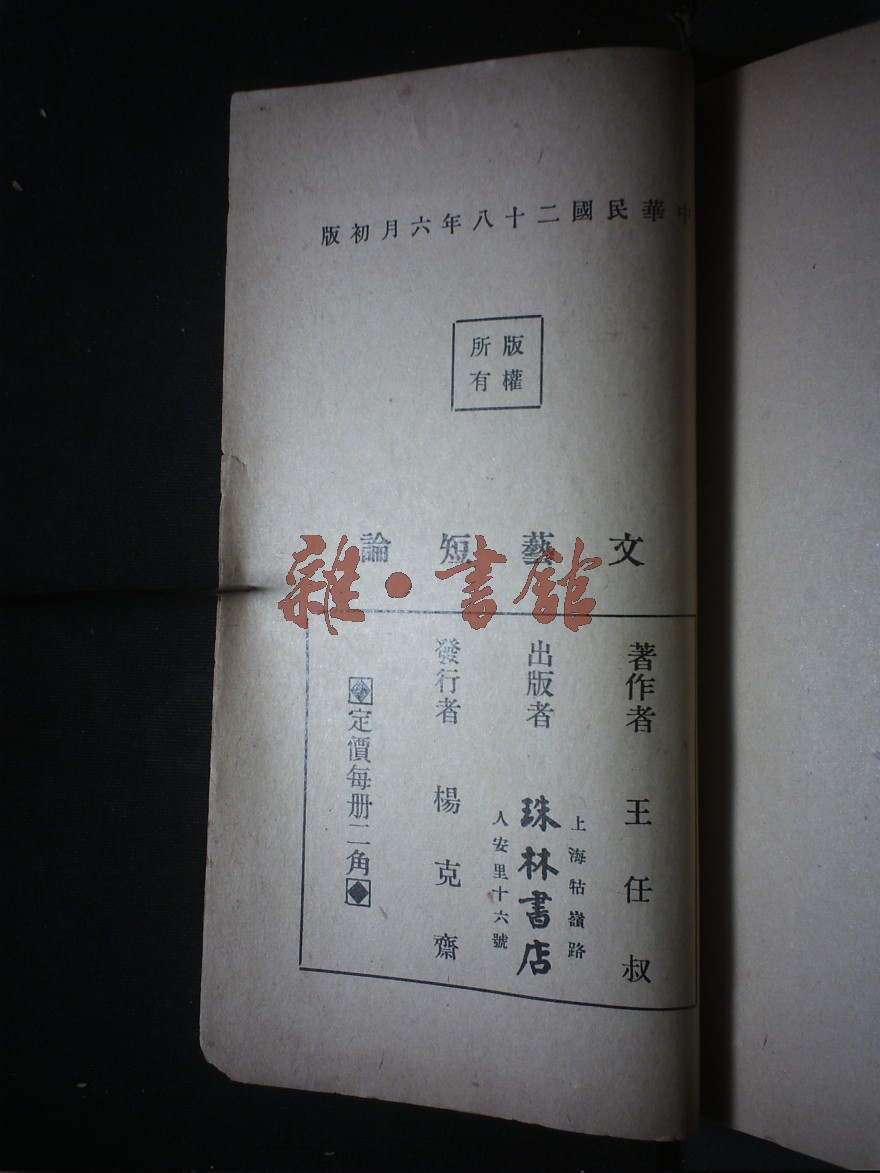 中華民國二十八年六月初版
版權
所有
文藝短論
著作者 王任叔
上海牯嶺路
出版者 珠林書店
人安里十六號
發行者 楊克齋
定價每册二角
雜·書館